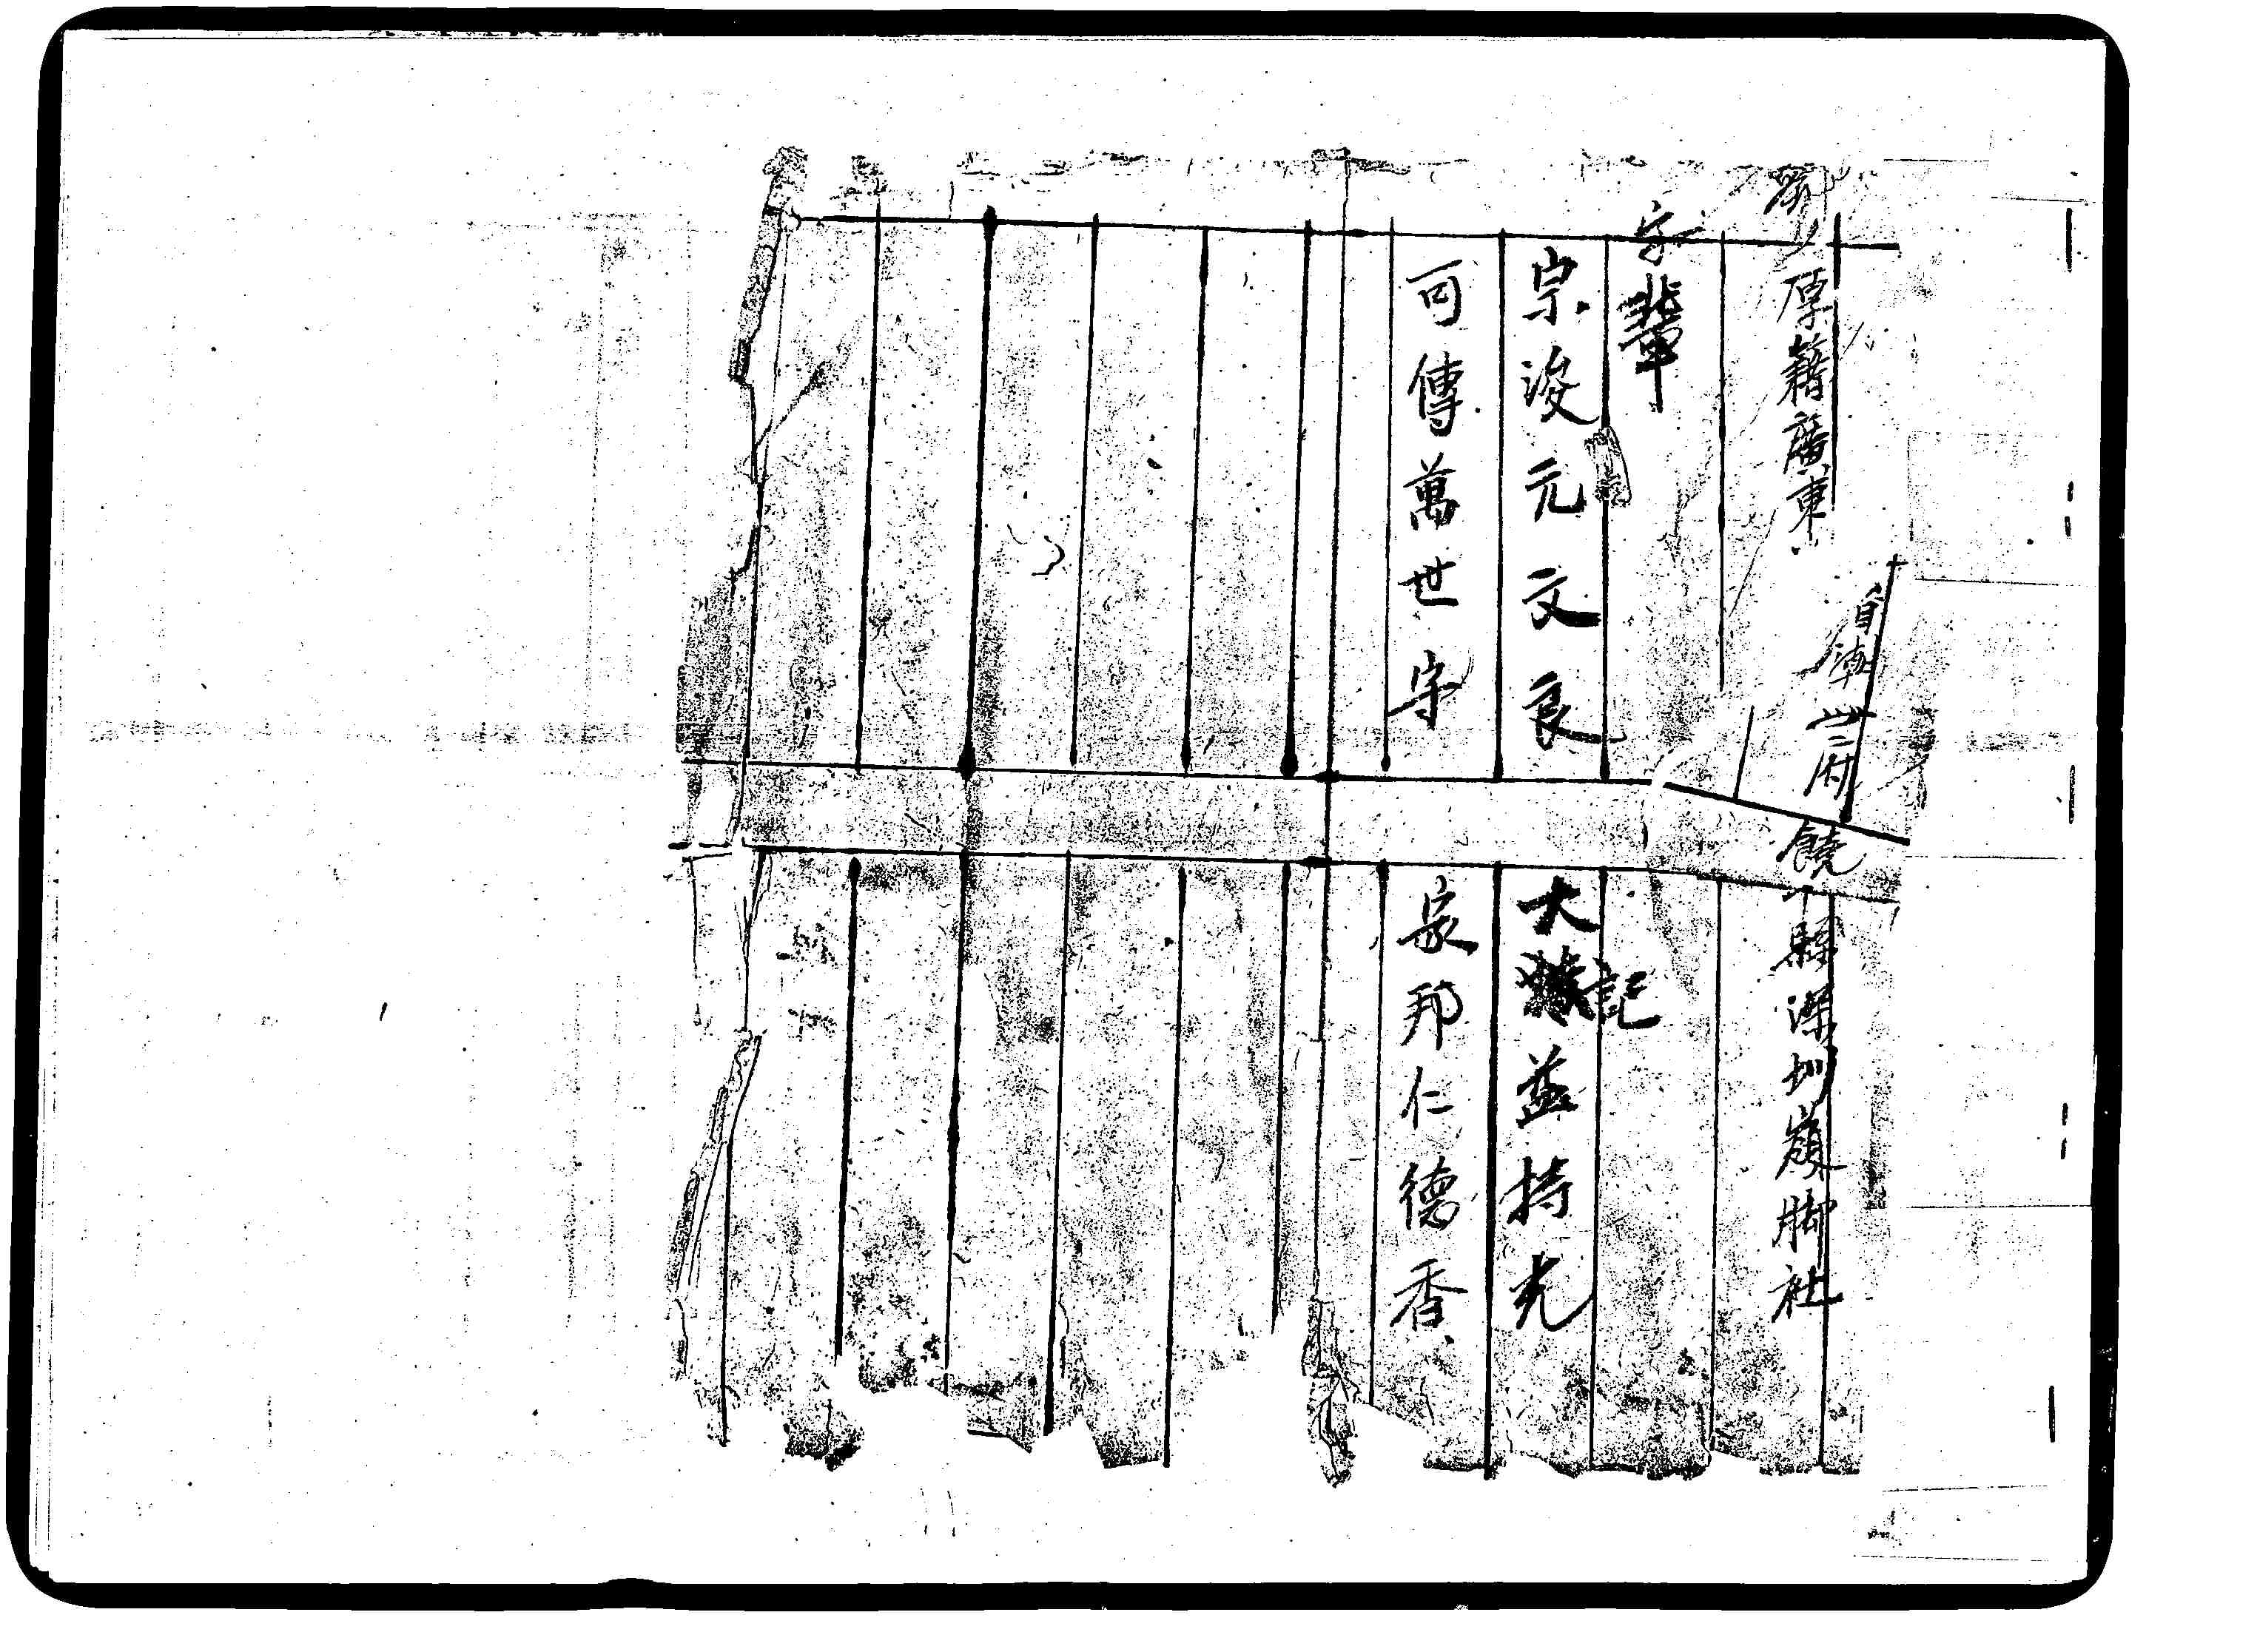 原籍廣東省潮州府饒平縣深圳嶺脚社
字輩
宗浚元文良
大記益持光
可傳萬世守
家邦仁德香